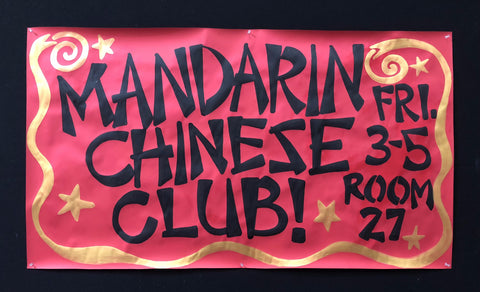 MANDARIN
CHINESE
CLUB!
FRI.
3-5
ROOM
27